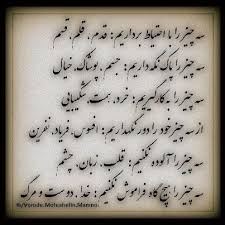 سه چیز را با احتیاط برداریم: قدم، قلم، قسم
سه چیز را پاک نگه داریم: جسم، پوشاک، خیال
سه چیز را به کار گیریم: خرد، همت، شکیبایی
از سه چیز خود را دور نگه داریم: افسوس، فریاد، نفرین
سه چیز را آلوده نکنیم: قلب، زبان، چشم
سه چیز را هیچ گاه فراموش نکنیم: خدا، دوست و مرگ